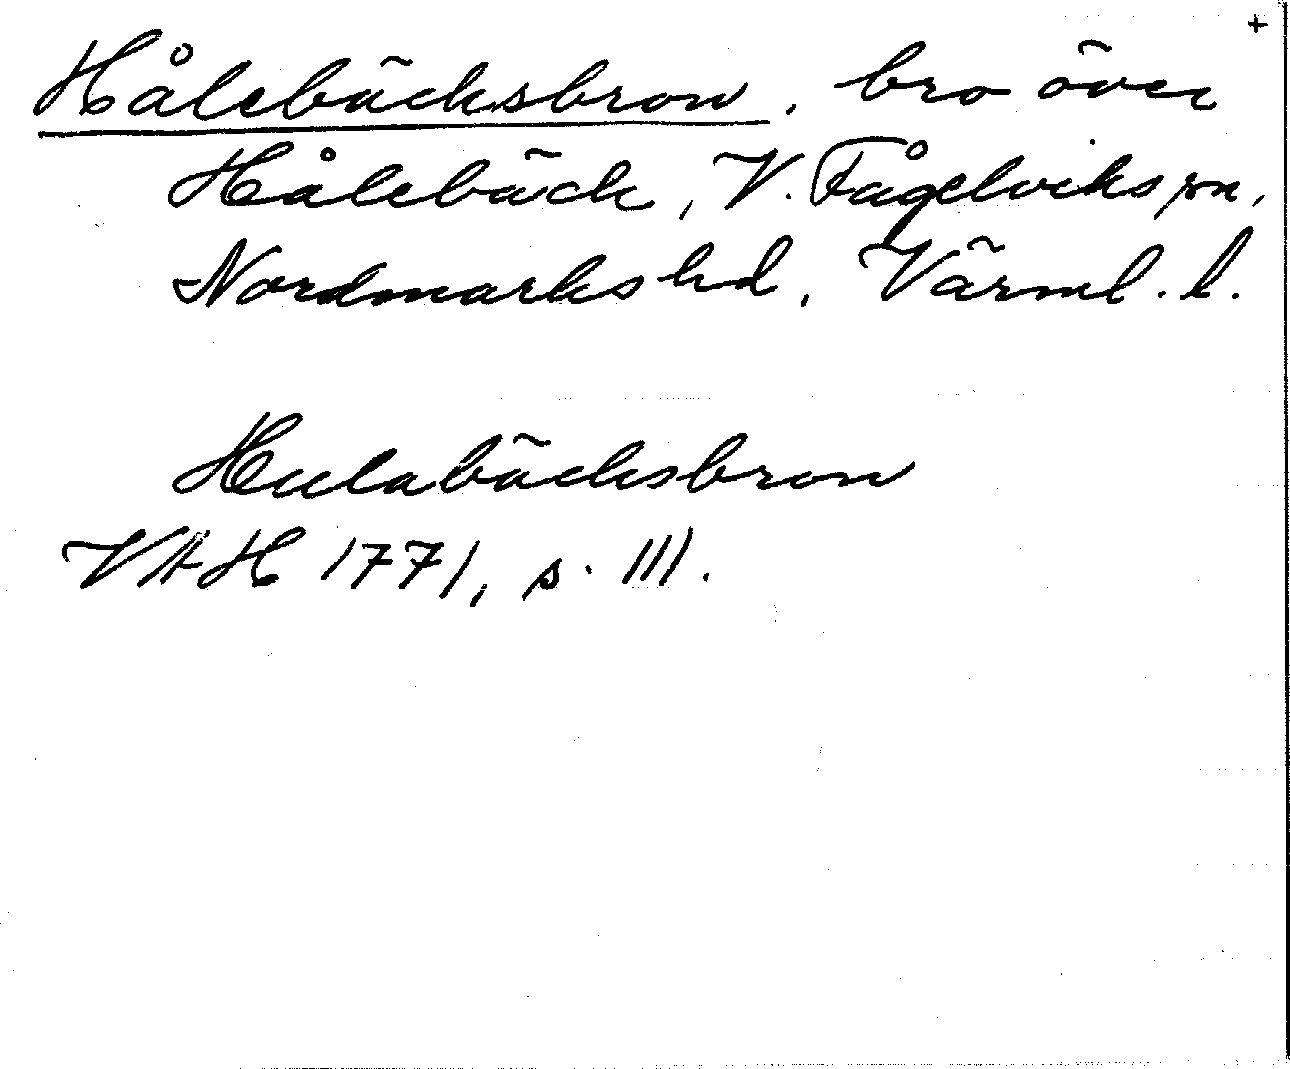 +
Hålebäcksbron, bro över
Hålebäck, V. Fågelviks sn,
Nordmarks hd, Värml. l.
Hulabäcksbron
VAH 1771, s. 111.